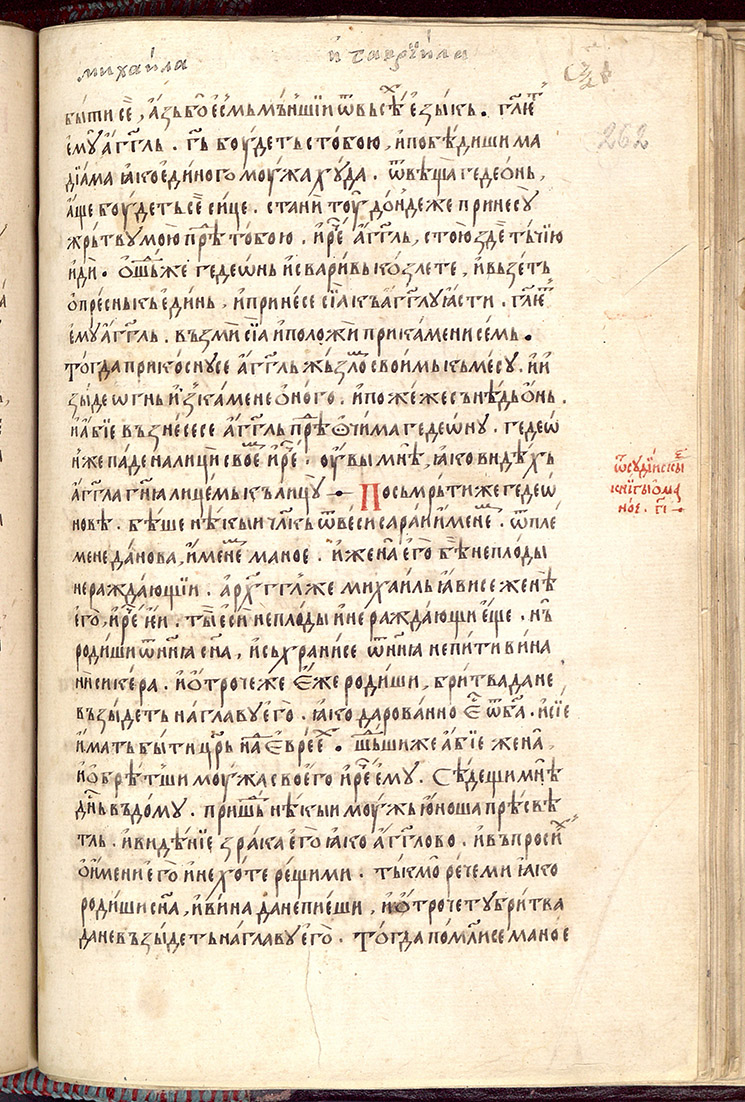 михаи́ла и гаврїи́ла
262
бы́ти сѐ, а҆зъ бо̀ є҆смь мьні́шїи ѿ въсѣ́х є҆зы́кь. гл҃ет
є҆мꙋ̀ а҆гг҃ль. гь҃ боу́деть с тобою, и҆ побѣ́диши ма
дїа́ма ꙗко є҆ди́ного моу́жа хꙋ́да. ѿвѣ́ща гедео́нь,
а҆ще боу́деть сѐ си́це. стани̏ тоу̀ до́ндеже принесꙋ̀
жрь́твꙋ мою̀ прѣд тобою. и҆ реч҇е а҆гг҃ль, стою̀ здѐ тъ́чїю
и҆ди̏. ѡ҆шь́д же гедео́нь и҆ свари́вь козлете, и҆ възе́ть
о҆прѣснькь є҆ди́нь, и҆ принесе сїа̀ къ а҆гг҃лꙋ ꙗ҆сти. гл҃ет
є҆мꙋ а҆гг҃ль. въ́змѝ сїа̀ и҆ положѝ при ка́мени се́мь.
То́гда прикоснꙋ се а҆гг҃ль жъзло́м свои́мь къ ме́сꙋ. и҆ и҆
зы́де ѡ҆гнь и҆з ка́мене о҆ного. и҆ пожеже съ нѣдь о҆нь.
и҆ а҆бїе възнесе се а҆гг҃ль прѣд ѻ҆чи́ма гедеѡ́нꙋ. гедеѡ́
н же паде на лици свое́м и҆ реч҇е. оу҆вы мнѣ, ꙗ҆ко видѣхь
а҆гг҃ла гн҃ꙗ лице́мь къ ли́цꙋ. По съмрь́ти же гедеѡ́
новѣ. бѣ́ше нѣ́кыи чл҃кь ѿ вьси сараи и҆мене́м. ѿ пле
мене да́нова, и҆мене́м маное. и҆ жена̀ є҆го̀ бѣ̀ непло́ды
нераждающїи. а҆рха́гг҃ль же михаиль ꙗ҆ви се женѣ̀
є҆го̀, и҆ реч҇е є҆и. ты̀ є҆сѝ непло́ды и҆ не раждающи є҆ще. нь̀
роди́ши ѿнн҃ꙗ сн҃а, и҆ съхрани се ѿнн҃ꙗ не пи́ти вина
нѝ сике́ра. и҆ ѻ҆троче же є҆же роди́ши, бритва да не
възы́деть на главꙋ є҆го̀. ꙗ҆ко дарова́нно є҆с ѿ ба҃. и҆ сїе
и҆мать бы́ти цр҃ь на́д є҆вре́ех. шь́дши же а҆бїе жена̀,
и҆ ѻ҆брѣтши моу́жа своего и҆ реч҇е є҆мꙋ. Сѣдещи мнѣ
дн҇ь въ до́мꙋ. прїиде нѣ́кыи моу́жь ю҆ноша прѣсвѣ
тль. и҆ видѣнїе зрака є҆го̀ ꙗ҆ко а҆гг҃лово. и҆ въпроси́х
о҆ и҆мени є҆го̀ и҆ не хоте рещи ми. тъ́кмо рече ми ꙗ҆ко
роди́ши сн҃а, и҆ вина да не пїеши, и҆ ѻ҆трочетꙋ бритва
да не възы́деть на главꙋ є҆го̀. То́гда помл҃и се маное
ѿ сꙋді́искы
кни́гы ѻ҆ ма
но́е. гл҃